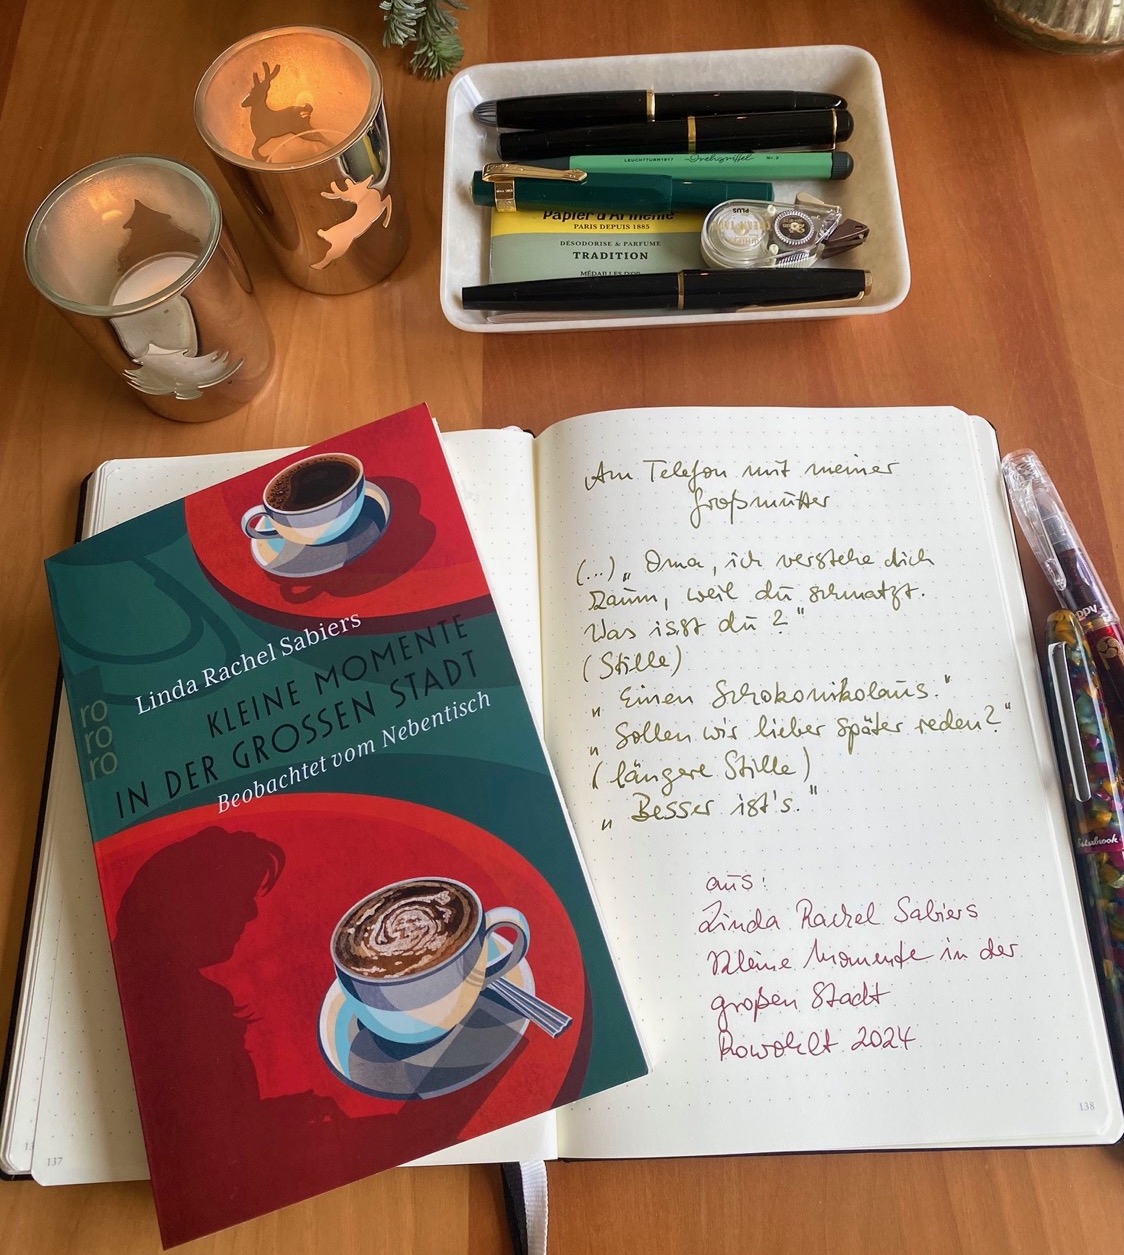 LEUCHTTURM1917 Drehgriffel Nr. 2
Papier d'Arménie
PARIS DEPUIS 1885
DÉSODORISE & PARFUME
TRADITION
MÉDAILLES D'OR
PLUS
Linda Rachel Sabiers
KLEINE MOMENTE
IN DER GROSSEN STADT
Beobachtet vom Nebentisch
ro
ro
ro
137
Am Telefon mit meiner
Großmutter
(...) „Oma, ich verstehe dich
kaum, weil du schmatzt.
Was isst du?"
(Stille)
„Einen Schokonikolaus."
„Sollen wir lieber später reden?"
(längere Stille)
„Besser ist's."
aus:
Linda Rachel Sabiers
Kleine Momente in der
großen Stadt
Rowohlt 2024
138
Esterbrook